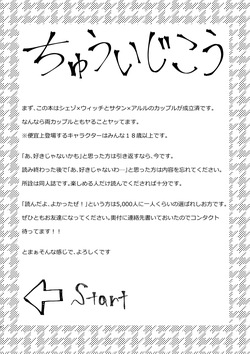 ちゅういじこう
まず、この本はシェゾ×ウィッチとサタン×アルルのカップルが成立済です。
なんなら両カップルともやることヤッてます。
※便宜上登場するキャラクターはみんな１８歳以上です。
「あ、好きじゃないかも」と思った方は引き返すなら、今です。
読み終わった後で「あ、好きじゃないわ…」と思った方は内容を忘れてください。
所詮は同人誌です。楽しめる人だけ読んでくだされば十分です。
「読んだよ、よかったぜ！」という方は5,000人に一人くらいの選ばれしお方です。
ぜひともお友達になってください。奥付に連絡先書いておいたのでコンタクト
待ってます！！
とまぁそんな感じで、よろしくです
Start